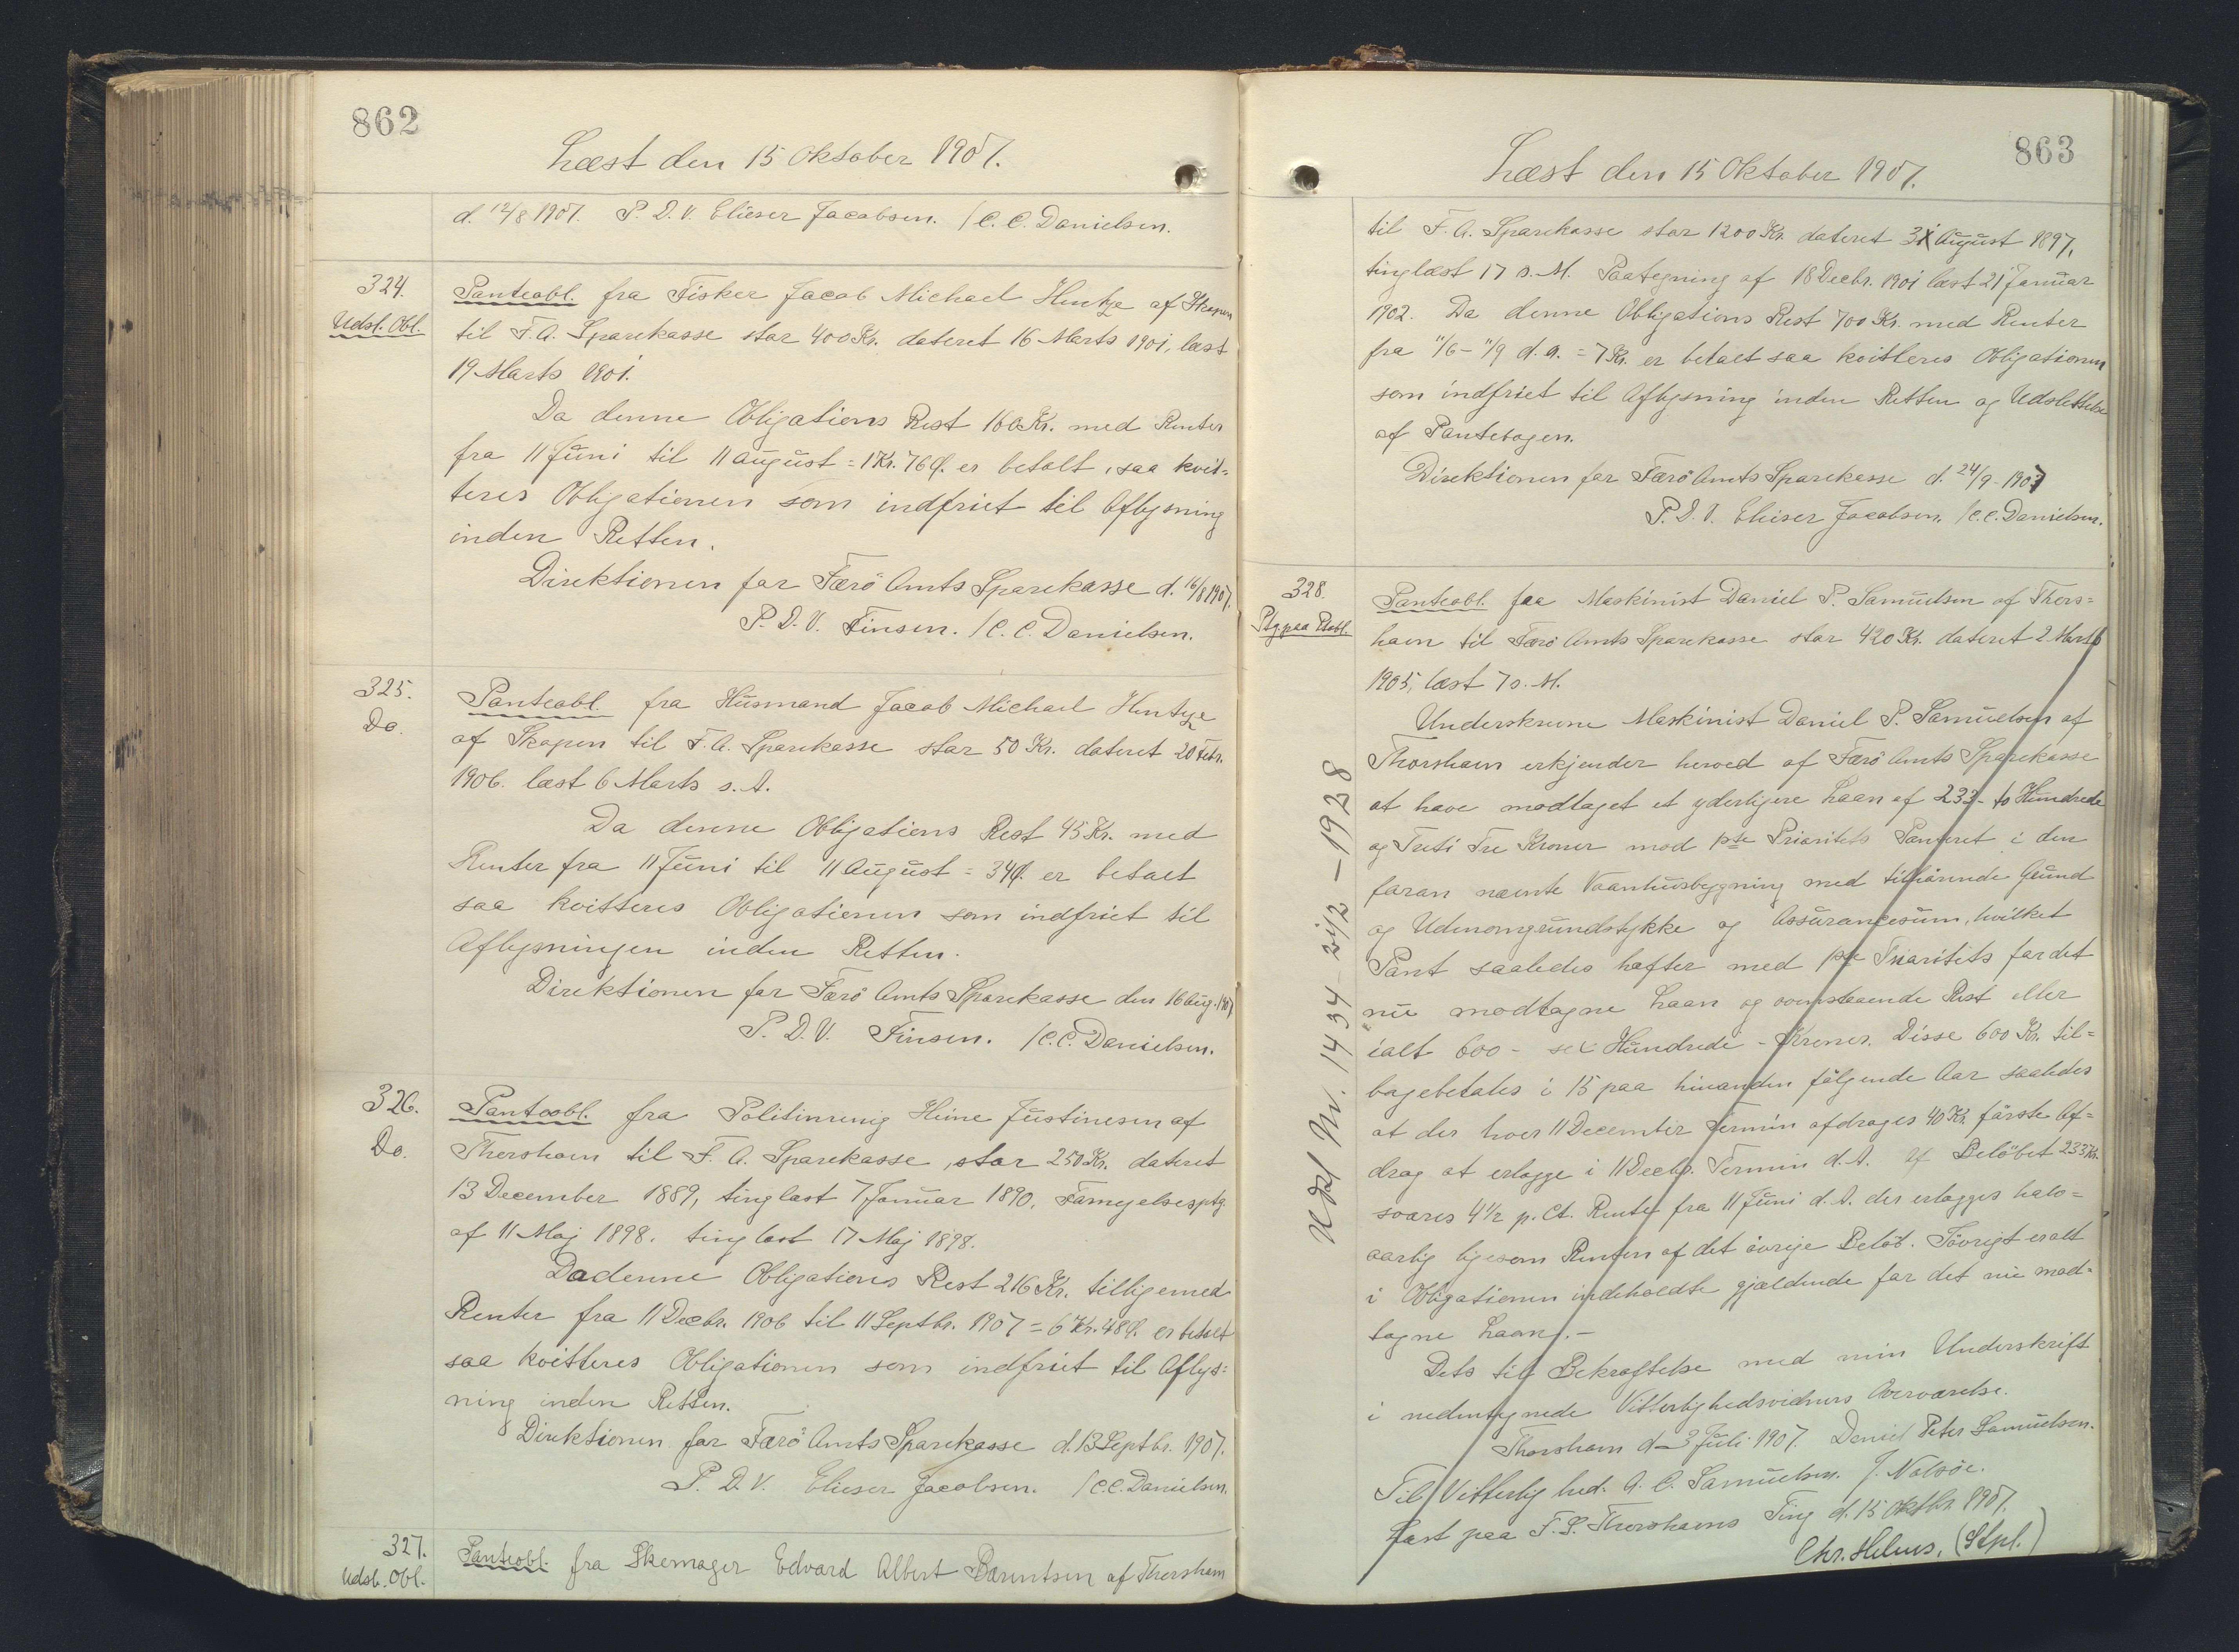 862
Læst den 15 Oktober 1907.
d. 12/8 1907. P. D. V. Elieser Jacobsen. /C. C. Danielsen.
324.
Udsl. Obl.
Panteobl. fra Fisker Jacob Michael Hentze af Skopen
til F. A. Sparekasse stor 400 Kr. dateret 16 Marts 1901, læst
19 Marts 1901.
Da denne Obligations Rest 160 Kr. med Renter
fra 11 Juni til 11 August = 1 Kr. 76 Ø. er betalt, saa kvit=
teres Obligationen som indfriet til Aflysning
inden Retten.
Direktionen for Færö Amts Sparekasse d. 16/8 1907.
P. D. V. Finsen. /C. C. Danielsen.
325.
Do.
Panteobl. fra Husmand Jacob Michael Hentze
af Skopen til F. A. Sparekasse stor 50 Kr. dateret 20 Febr.
1906. læst 6 Marts s. A.
Da denne Obligations Rest 45 Kr. med
Renter fra 11 Juni til 11 August = 34 Ø. er betalt
saa kvitteres Obligationen som indfriet til
Aflysningen inden Retten.
Direktionen for Færö Amts Sparekasse den 16 Aug. 1907
P. D. V. Finsen. /C. C. Danielsen.
326.
Do.
Panteobl. fra Politimenig Heine Justinesen af
Thorshavn til F. A. Sparekasse, stor 250 Kr. dateret
13 December 1889, tinglæst 7 Januar 1890. Fornyelsesptg.
af 11 Maj 1898. tinglæst 17 Maj 1898.
Da denne Obligations Rest 216 Kr. tilligemed
Renter fra 11 Decbr. 1906 til 11 Septbr. 1907 = 6 Kr. 48 Ø. er betalt
saa kvitteres Obligationen som indfriet til Aflys=
ning inden Retten.
Direktionen for Færö Amts Sparekasse d. 13 Septbr. 1907.
P. D. V. Elieser Jacobsen. /C. C. Danielsen.
327.
Udsl. Obl.
Panteobl. fra Skomager Edvard Albert Bærentsen af Thorshavn
863
Læst den 15 Oktober 1907.
til F. A. Sparekasse stor 1200 Kr. dateret August 1897,
tinglæst 17 s. M. Paategning af 18 Decbr. 1901 læst 21 Januar
1902. Da denne Obligations Rest 700 Kr. med Renter
fra 11/6 - 11/9 d. A. = 7 Kr. er betalt saa kvitteres Obligationen
som indfriet til Aflysning inden Retten og Udslettelse
af Pantebogen.
Direktionen for Færö Amts Sparekasse d. 24/9 - 1907
P. D. V. Elieser Jacobsen. /C. C. Danielsen.
328.
Ptg paa Pobl.
Panteobl. fra Maskinist Daniel P. Samuelsen af Thors=
havn til Færö Amts Sparekasse stor 420 Kr. dateret 2 Marts
1905, læst 7 s. M.
Underskrevne Maskinist Daniel P. Samuelsen af
Thorshavn erkjender herved af Færö Amts Sparekasse
at have modtaget et yderligere Laan af 233 - to Hundrede
og Treti Tre Kroner mod 1ste Prioritets Panteret i den
foran nævnte Vaanhusbygning med tilhörende Grund
og Udenomgrundstykke og Assurancesum, hvilket
Pant saaledes hæfter med 1ste Prioritets for det
nu modtagne Laan og ovenstaaende Rest eller
ialt 600 - sex Hundrede - Kroner. Disse 600 Kr. til=
bagebetales i 15 paa hinanden fölgende Aar saaledes
at der hver 11 December Termin afdrages 40 Kr. förste Af=
drag at erlægge i 11 Decbr. Termin d. A. af Belöbet 233 Kr.
svares 4 1/2 p. Ct. Renter fra 11 Juni d. A. der erlægges halv=
aarlig ligesom Renten af det övrige Belöb. Iövrigt er alt
i Obligationen indeholdte gjældende for det nu mod=
tagne Laan. -
Dets til Bekræftelse med min Underskrift
i nedentegnede Vitterlighedsvidners Overværelse.
Thorshavn d. 3 Juli 1907. Daniel Peter Samuelsen.
Til Vitterlighed. A. C. Samuelsen. J. Nolsöe.
Læst paa F. S. Thorshavns Ting d. 15 Oktbr. 1907.
Chr. Helms. (Stpl.)
Udsl Nr. 1434 - 21/2 - 1928